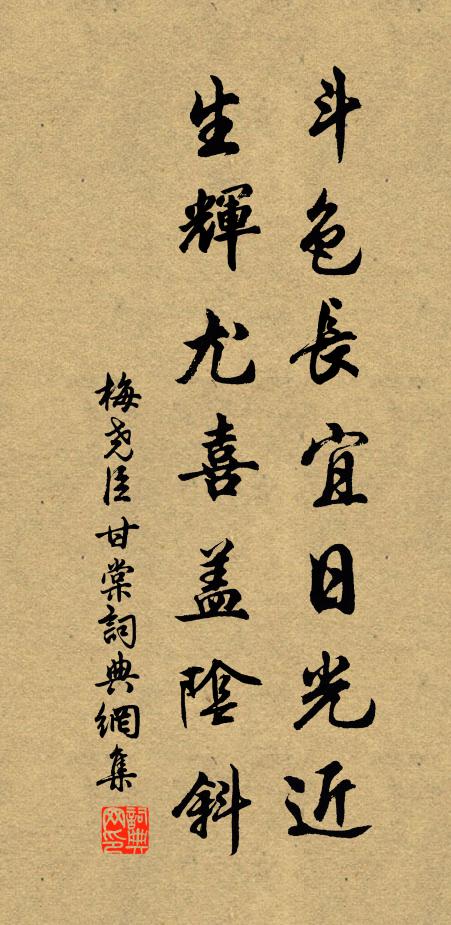 斗色長宜日光近
生輝尤喜蓋陰斜
梅堯臣甘棠詞典網集
詞典網印